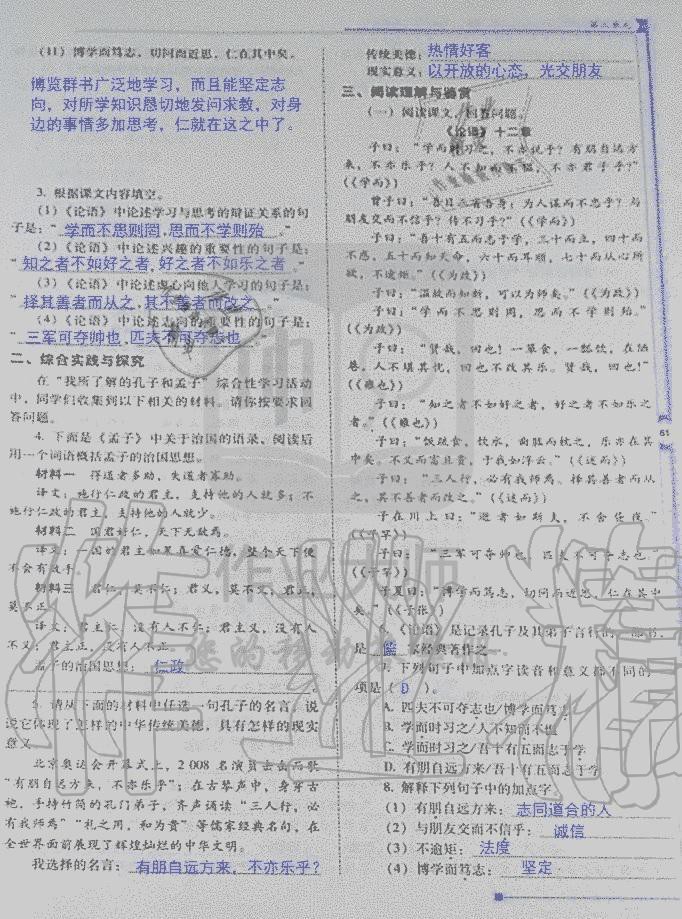 第三单元
(11) 博学而笃志，切问而近思，仁在其中矣。
博览群书广泛地学习，而且能坚定志
向，对所学知识恳切地发问求教，对身
边的事情多加思考，仁就在这之中了。
3. 根据课文内容填空。
(1)《论语》中论述学习与思考的辩证关系的句
子是：“学而不思则罔，思而不学则殆。”
(2)《论语》中论述兴趣的重要性的句子是：
“知之者不如好之者，好之者不如乐之者。”
(3)《论语》中论述虚心向他人学习的句子是：
“择其善者而从之，其不善者而改之。”
(4)《论语》中论述志向的重要性的句子是：
“三军可夺帅也，匹夫不可夺志也。”
二、综合实践与探究
在“我所了解的孔子和孟子”综合性学习活动
中，同学们收集到以下相关的材料。请你按要求回
答问题。
4. 下面是《孟子》中关于治国的语录，阅读后
用一个词语概括孟子的治国思想。
材料一 得道者多助，失道者寡助。
译文：施行仁政的君主，支持他的人就多；不
施行仁政的君主，支持他的人就少。
材料二 国君好仁，天下无敌焉。
译文：一国的君主如果喜爱仁德，整个天下便
不会有敌手。
材料三 君仁，莫不仁；君义，莫不义；君正，
莫不正。
译文：君主仁，没有人不仁；君主义，没有人
不义；君主正，没有人不正。
孟子的治国思想：仁政
5. 请从下面的材料中任选一句孔子的名言，说
说它体现了怎样的中华传统美德，具有怎样的现实
意义。
北京奥运会开幕式上，2 008 名演员击缶而歌
“有朋自远方来，不亦乐乎”；在古琴声中，身穿古
袍、手持竹简的孔门弟子，齐声诵读“三人行，必
有我师焉”“礼之用，和为贵”等儒家经典名句，在
全世界面前展现了辉煌灿烂的中华文明。
我选择的名言：有朋自远方来，不亦乐乎？
传统美德：热情好客
现实意义：以开放的心态，光交朋友
三、阅读理解与鉴赏
(一) 阅读课文，回答问题。
《论语》十二章
子曰：“学而时习之，不亦说乎？有朋自远方
来，不亦乐乎？人不知而不愠，不亦君子乎？”
(《学而》)
曾子曰：“吾日三省吾身：为人谋而不忠乎？与
朋友交而不信乎？传不习乎？”(《学而》)
子曰：“吾十有五而志于学，三十而立，四十而
不惑，五十而知天命，六十而耳顺，七十而从心所
欲，不逾矩。”(《为政》)
子曰：“温故而知新，可以为师矣。”(《为政》)
子曰：“学而不思则罔，思而不学则殆。”
(《为政》)
子曰：“贤哉，回也！一箪食，一瓢饮，在陋
巷，人不堪其忧，回也不改其乐。贤哉，回也！”
(《雍也》)
子曰：“知之者不如好之者，好之者不如乐之
者。”(《雍也》)
子曰：“饭疏食，饮水，曲肱而枕之，乐亦在其
中矣。不义而富且贵，于我如浮云。”(《述而》)
子曰：“三人行，必有我师焉。择其善者而从
之，其不善者而改之。”(《述而》)
子在川上曰：“逝者如斯夫，不舍昼夜。”
(《子罕》)
子曰：“三军可夺帅也，匹夫不可夺志也。”
(《子罕》)
子夏曰：“博学而笃志，切问而近思，仁在其中
矣。”(《子张》)
6.《论语》是记录孔子及其弟子言行的一部书，
是儒家经典著作之一。
7. 下列句子中加点字读音和意义都不同的一
项是( D )。
A. 匹夫不可夺志也/博学而笃志
B. 学而时习之/人不知而不愠
C. 学而时习之/吾十有五而志于学
D. 有朋自远方来/吾十有五而志于学
8. 解释下列句子中的加点字。
(1) 有朋自远方来：志同道合的人
(2) 与朋友交而不信乎：诚信
(3) 不逾矩：法度
(4) 博学而笃志：坚定
61
作业精灵
作业大师
您的移动